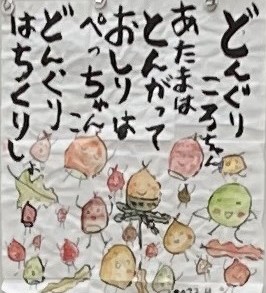 どんぐり
ころちゃん
あたまは
とんがって
おしりは
ぺっちゃんこ
どんぐり
はちくりしょ